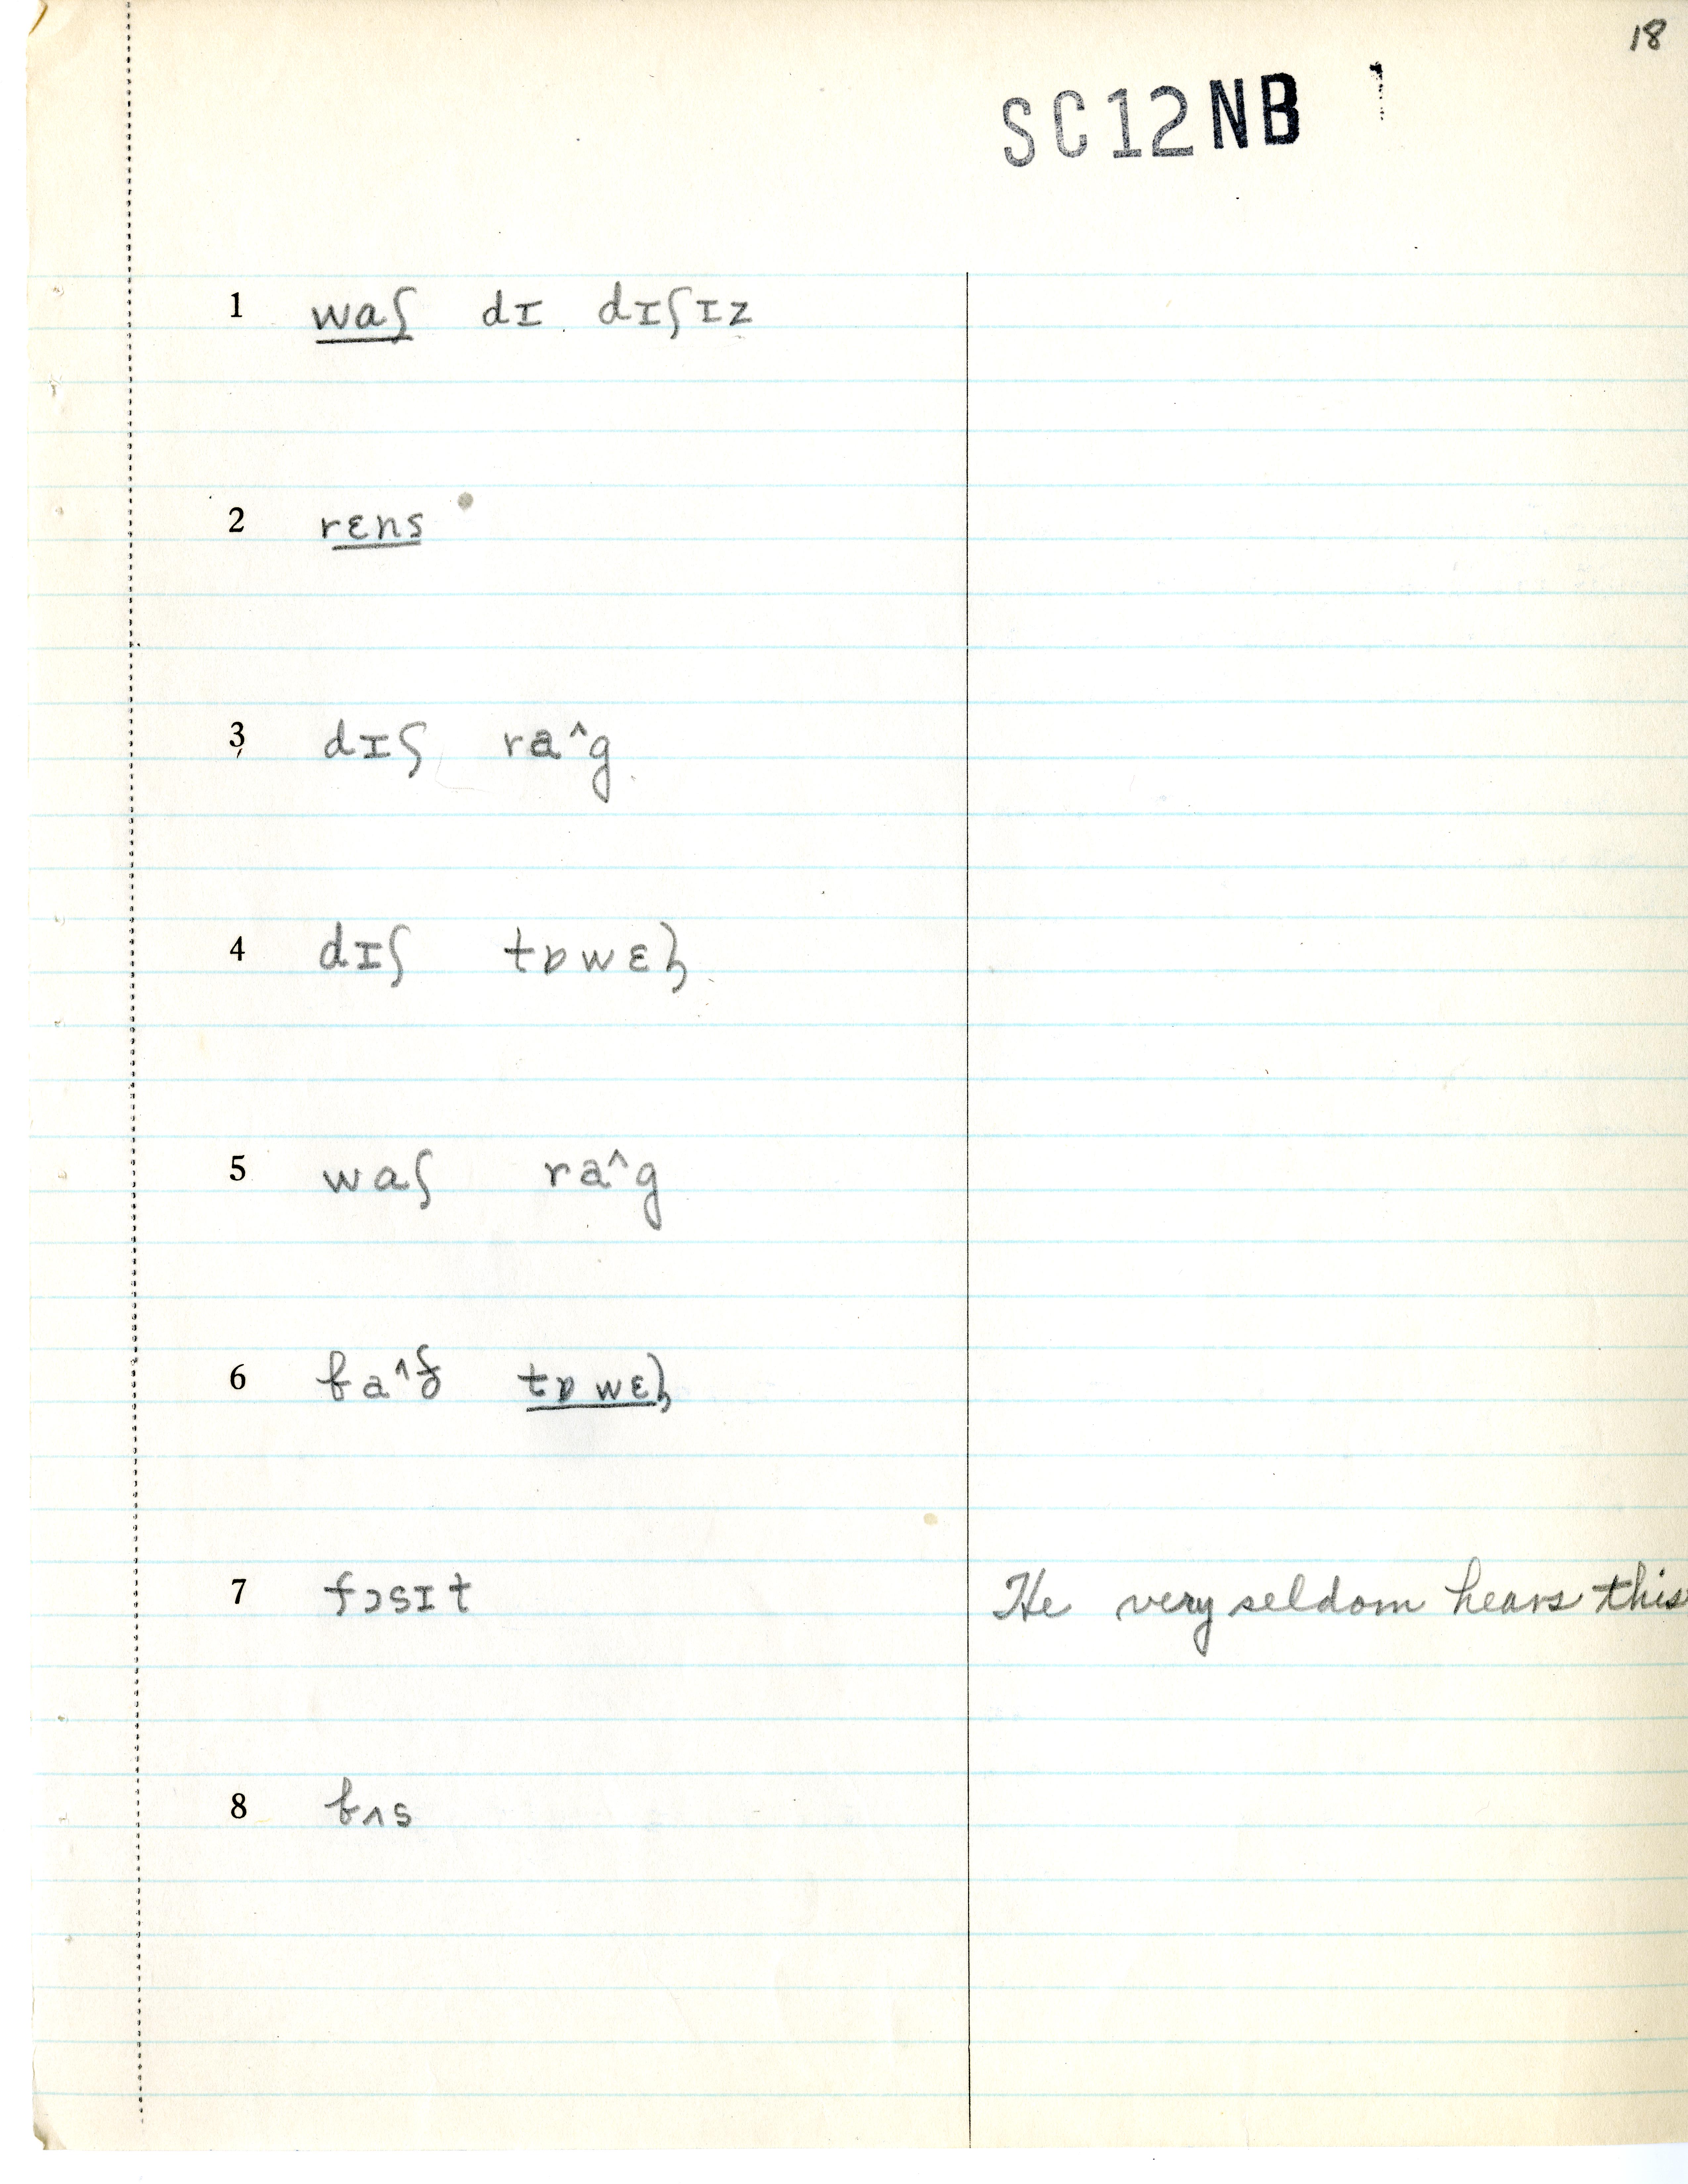 18
SC12NB 1
1 waʃ dɪ dɪʃɪz
2 rɛns
3 dɪʃ ra^g
4 dɪʃ tɒwɛl
5 waʃ ra^g
6 ra^g tɒwɛl
7 fɔsɪt He very seldom hears this
8 bʌs